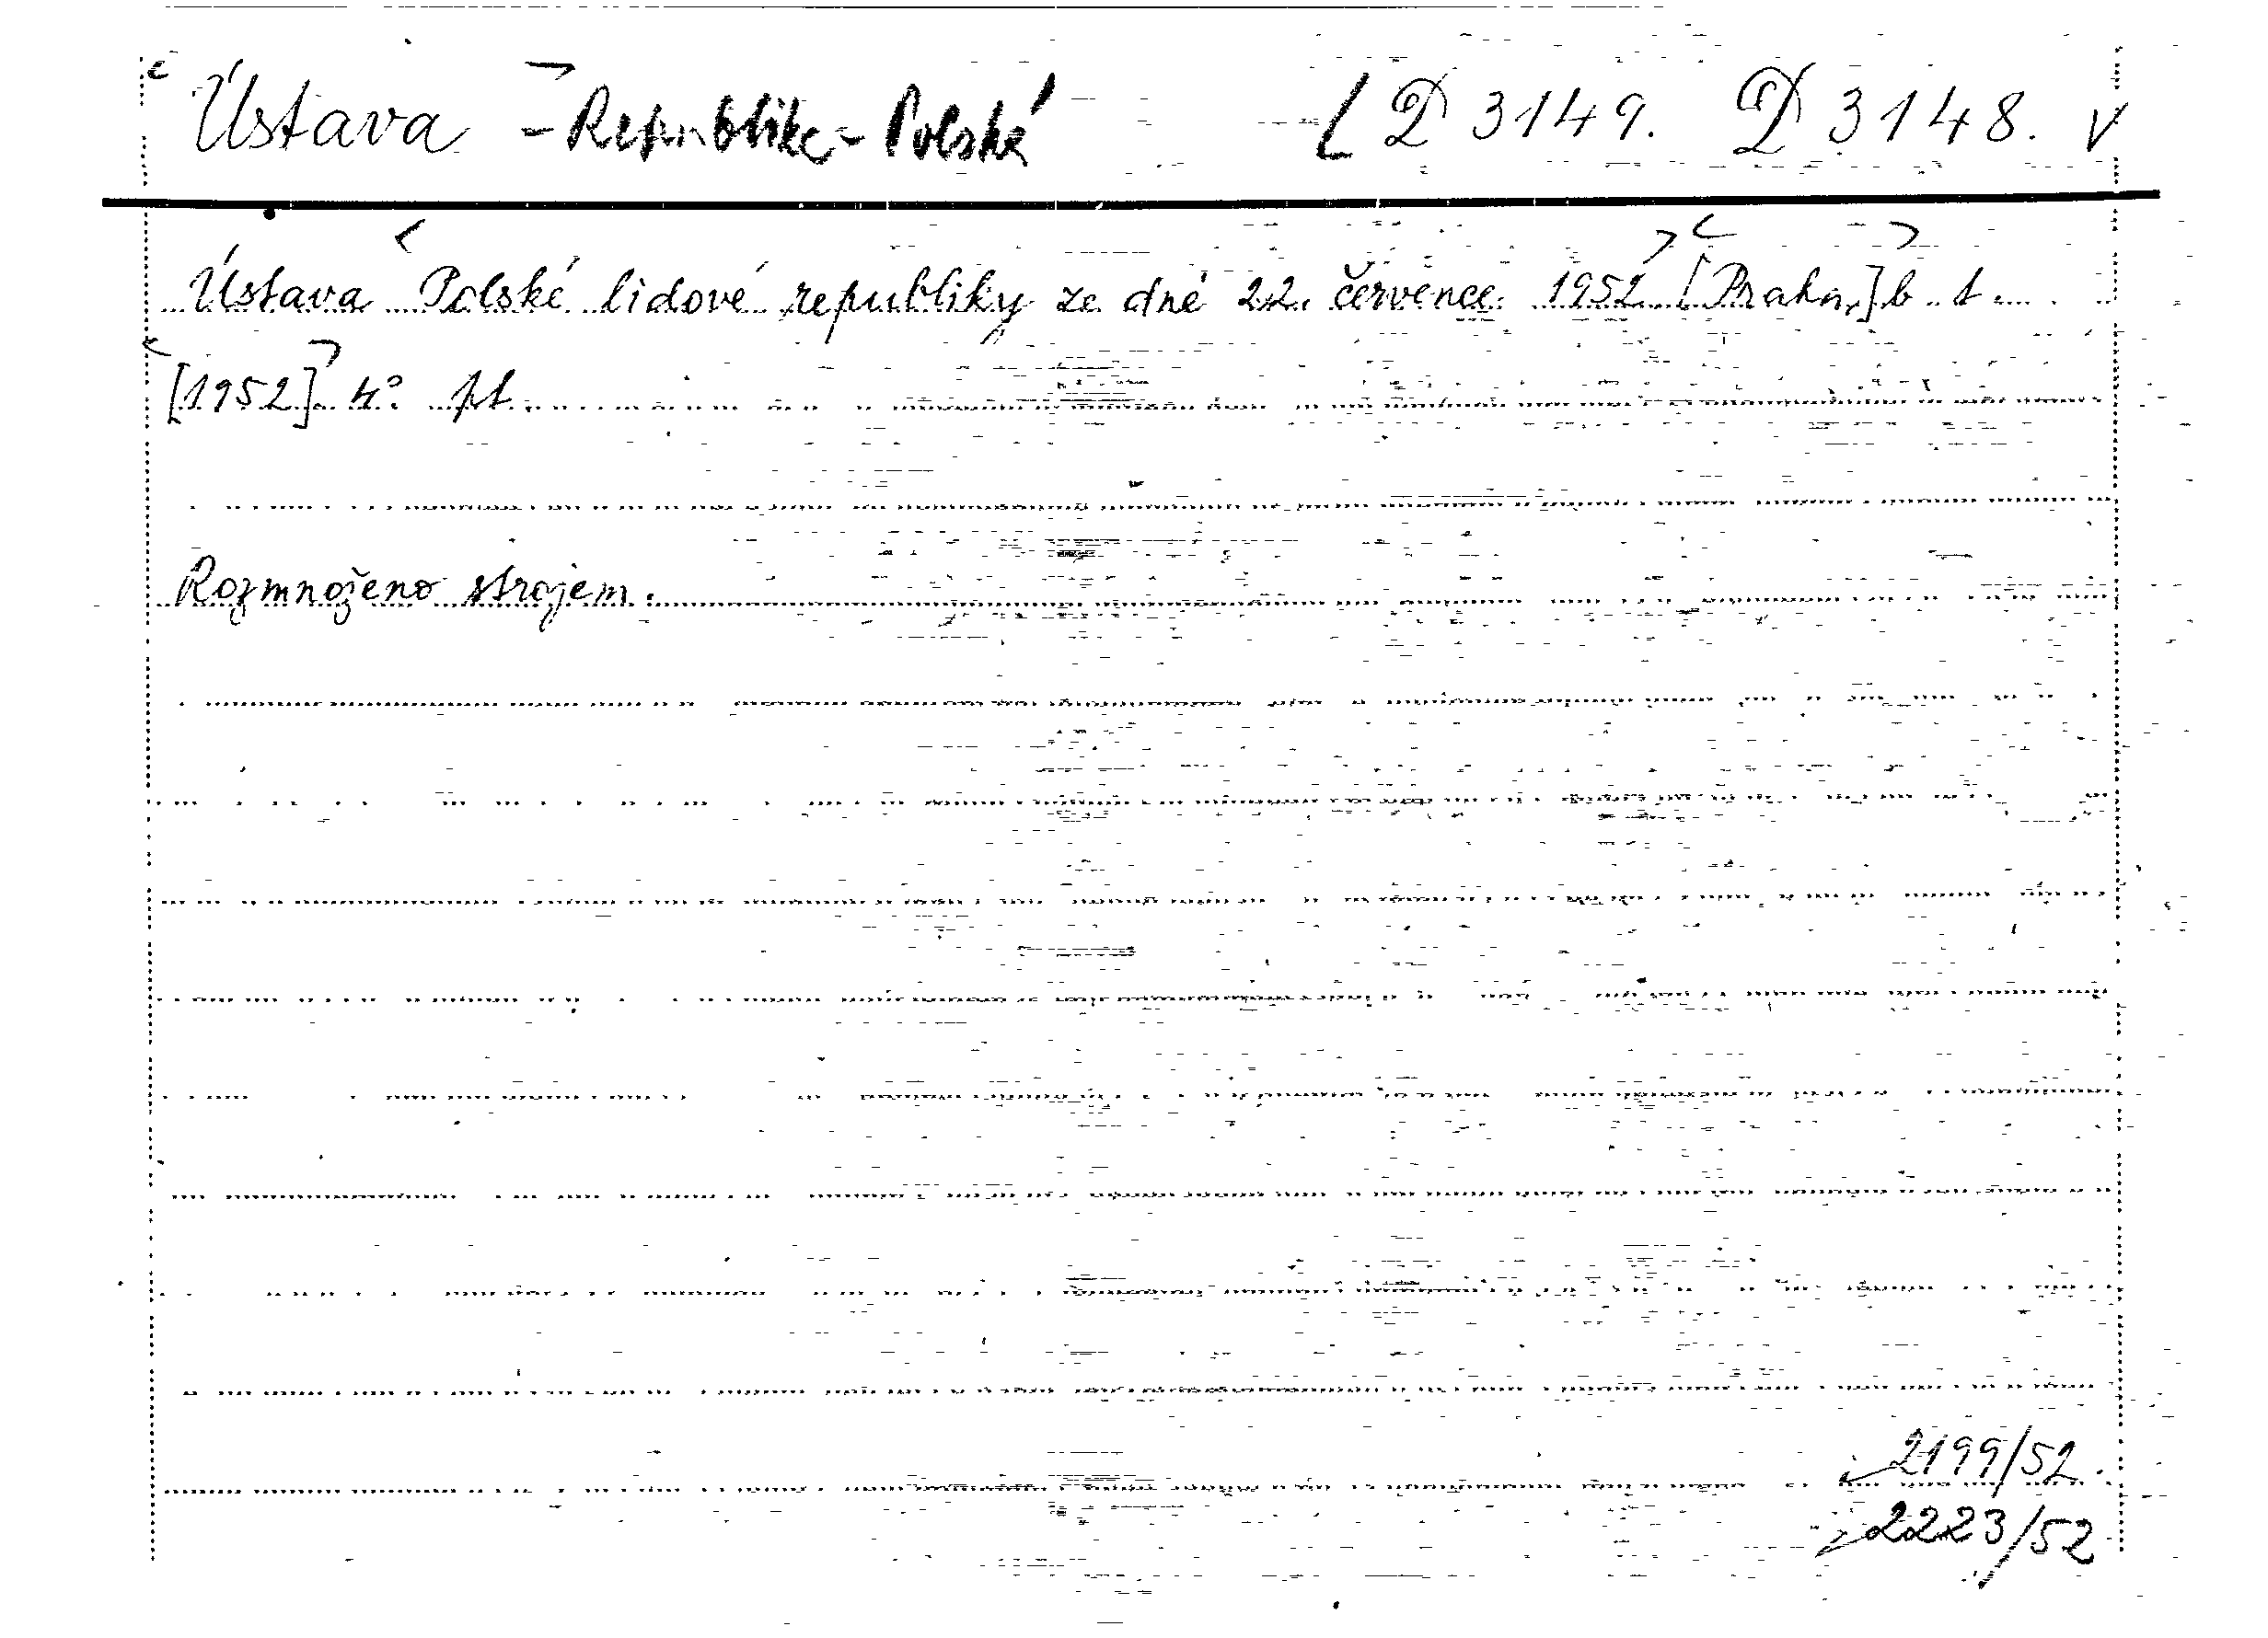 Ústava - Republika - Polská [ D 3149. D 3148. v
Ústava Polské lidové republiky ze dné 22. července 1952 [Praha,] b. t.
[1952] 4° pt.
Rozmnoženo strojem.
2199/52.
2223/52